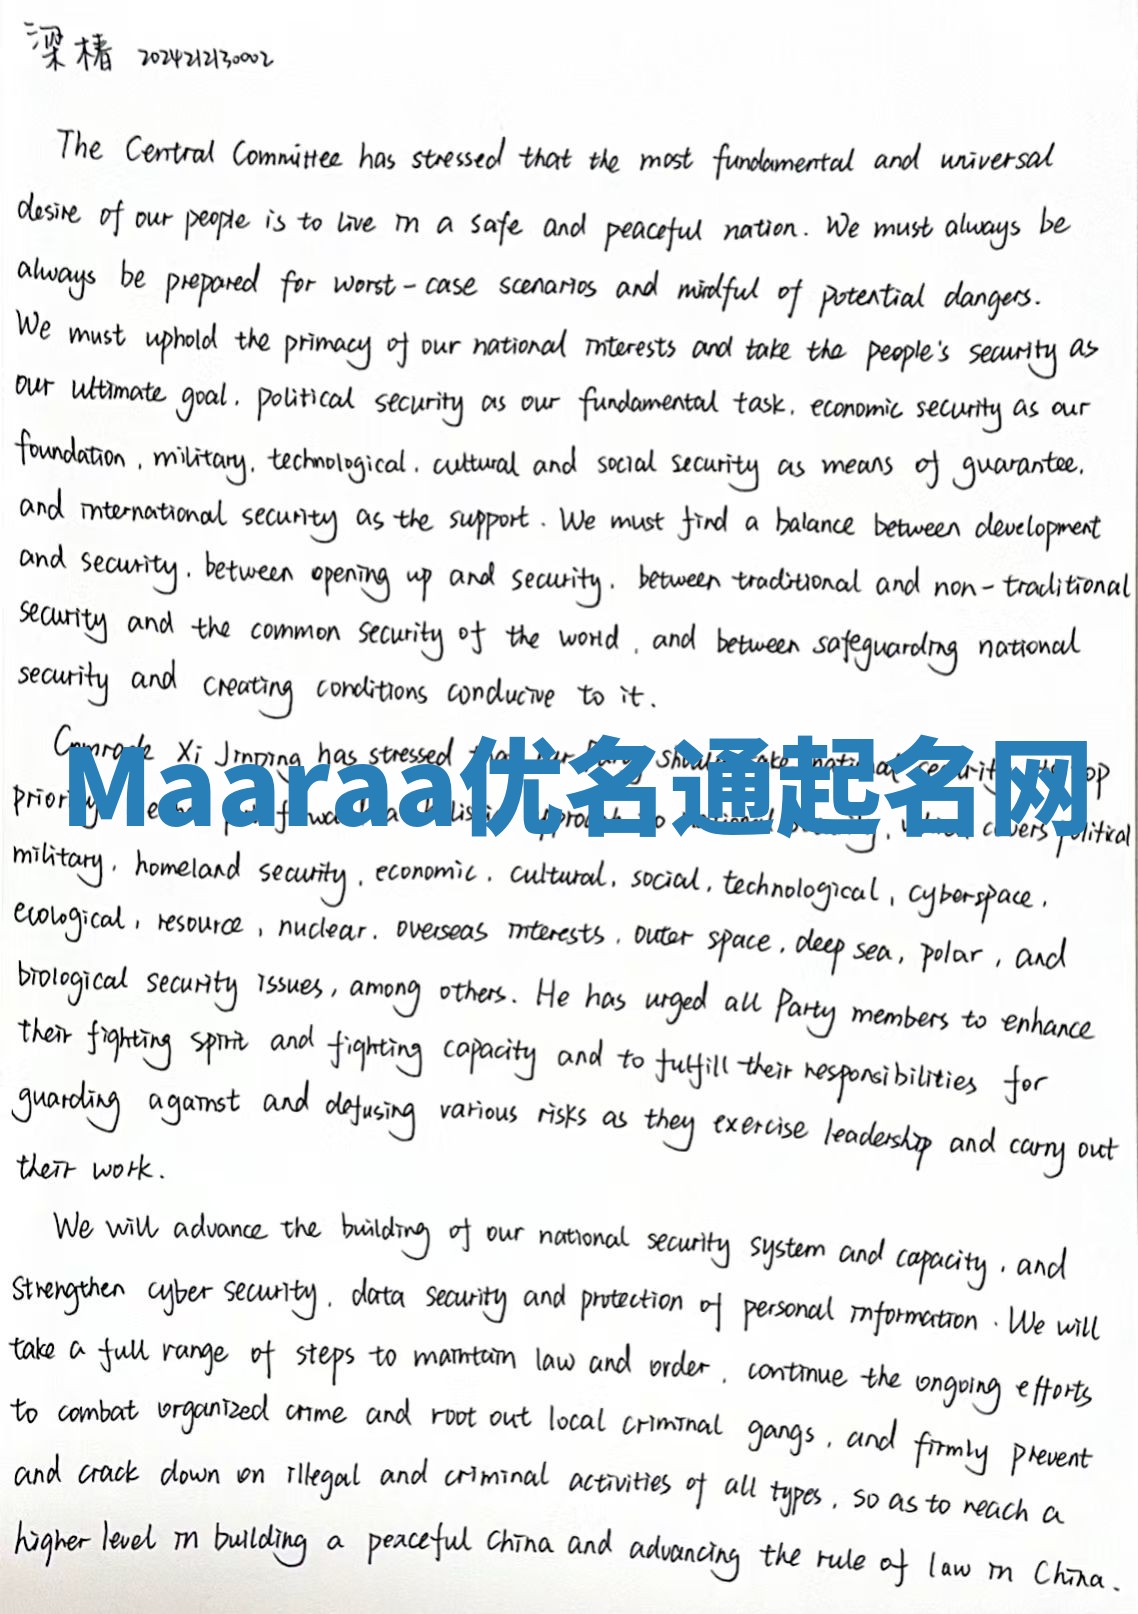 梁椿 2024212130002
The Central Committee has stressed that the most fundamental and universal
desire of our people is to live in a safe and peaceful nation. We must always be
always be prepared for worst-case scenarios and mindful of potential dangers.
We must uphold the primacy of our national interests and take the people's security as
our ultimate goal, political security as our fundamental task, economic security as our
foundation, military, technological, cultural and social security as means of guarantee,
and international security as the support. We must find a balance between development
and security, between opening up and security, between traditional and non-traditional
security and the common security of the world, and between safeguarding national
security and creating conditions conducive to it.
Comrade Xi Jinping has stressed
Maaraa优名通起名网
political
military, homeland security, economic, cultural, social, technological, cyberspace,
ecological, resource, nuclear, overseas interests, outer space, deep sea, polar, and
biological security issues, among others. He has urged all Party members to enhance
their fighting spirit and fighting capacity and to fulfill their responsibilities for
guarding against and defusing various risks as they exercise leadership and carry out
their work.
We will advance the building of our national security system and capacity, and
strengthen cyber security, data security and protection of personal information. We will
take a full range of steps to maintain law and order, continue the ongoing efforts
to combat organized crime and root out local criminal gangs, and firmly prevent
and crack down on illegal and criminal activities of all types, so as to reach a
higher level in building a peaceful China and advancing the rule of law in China.